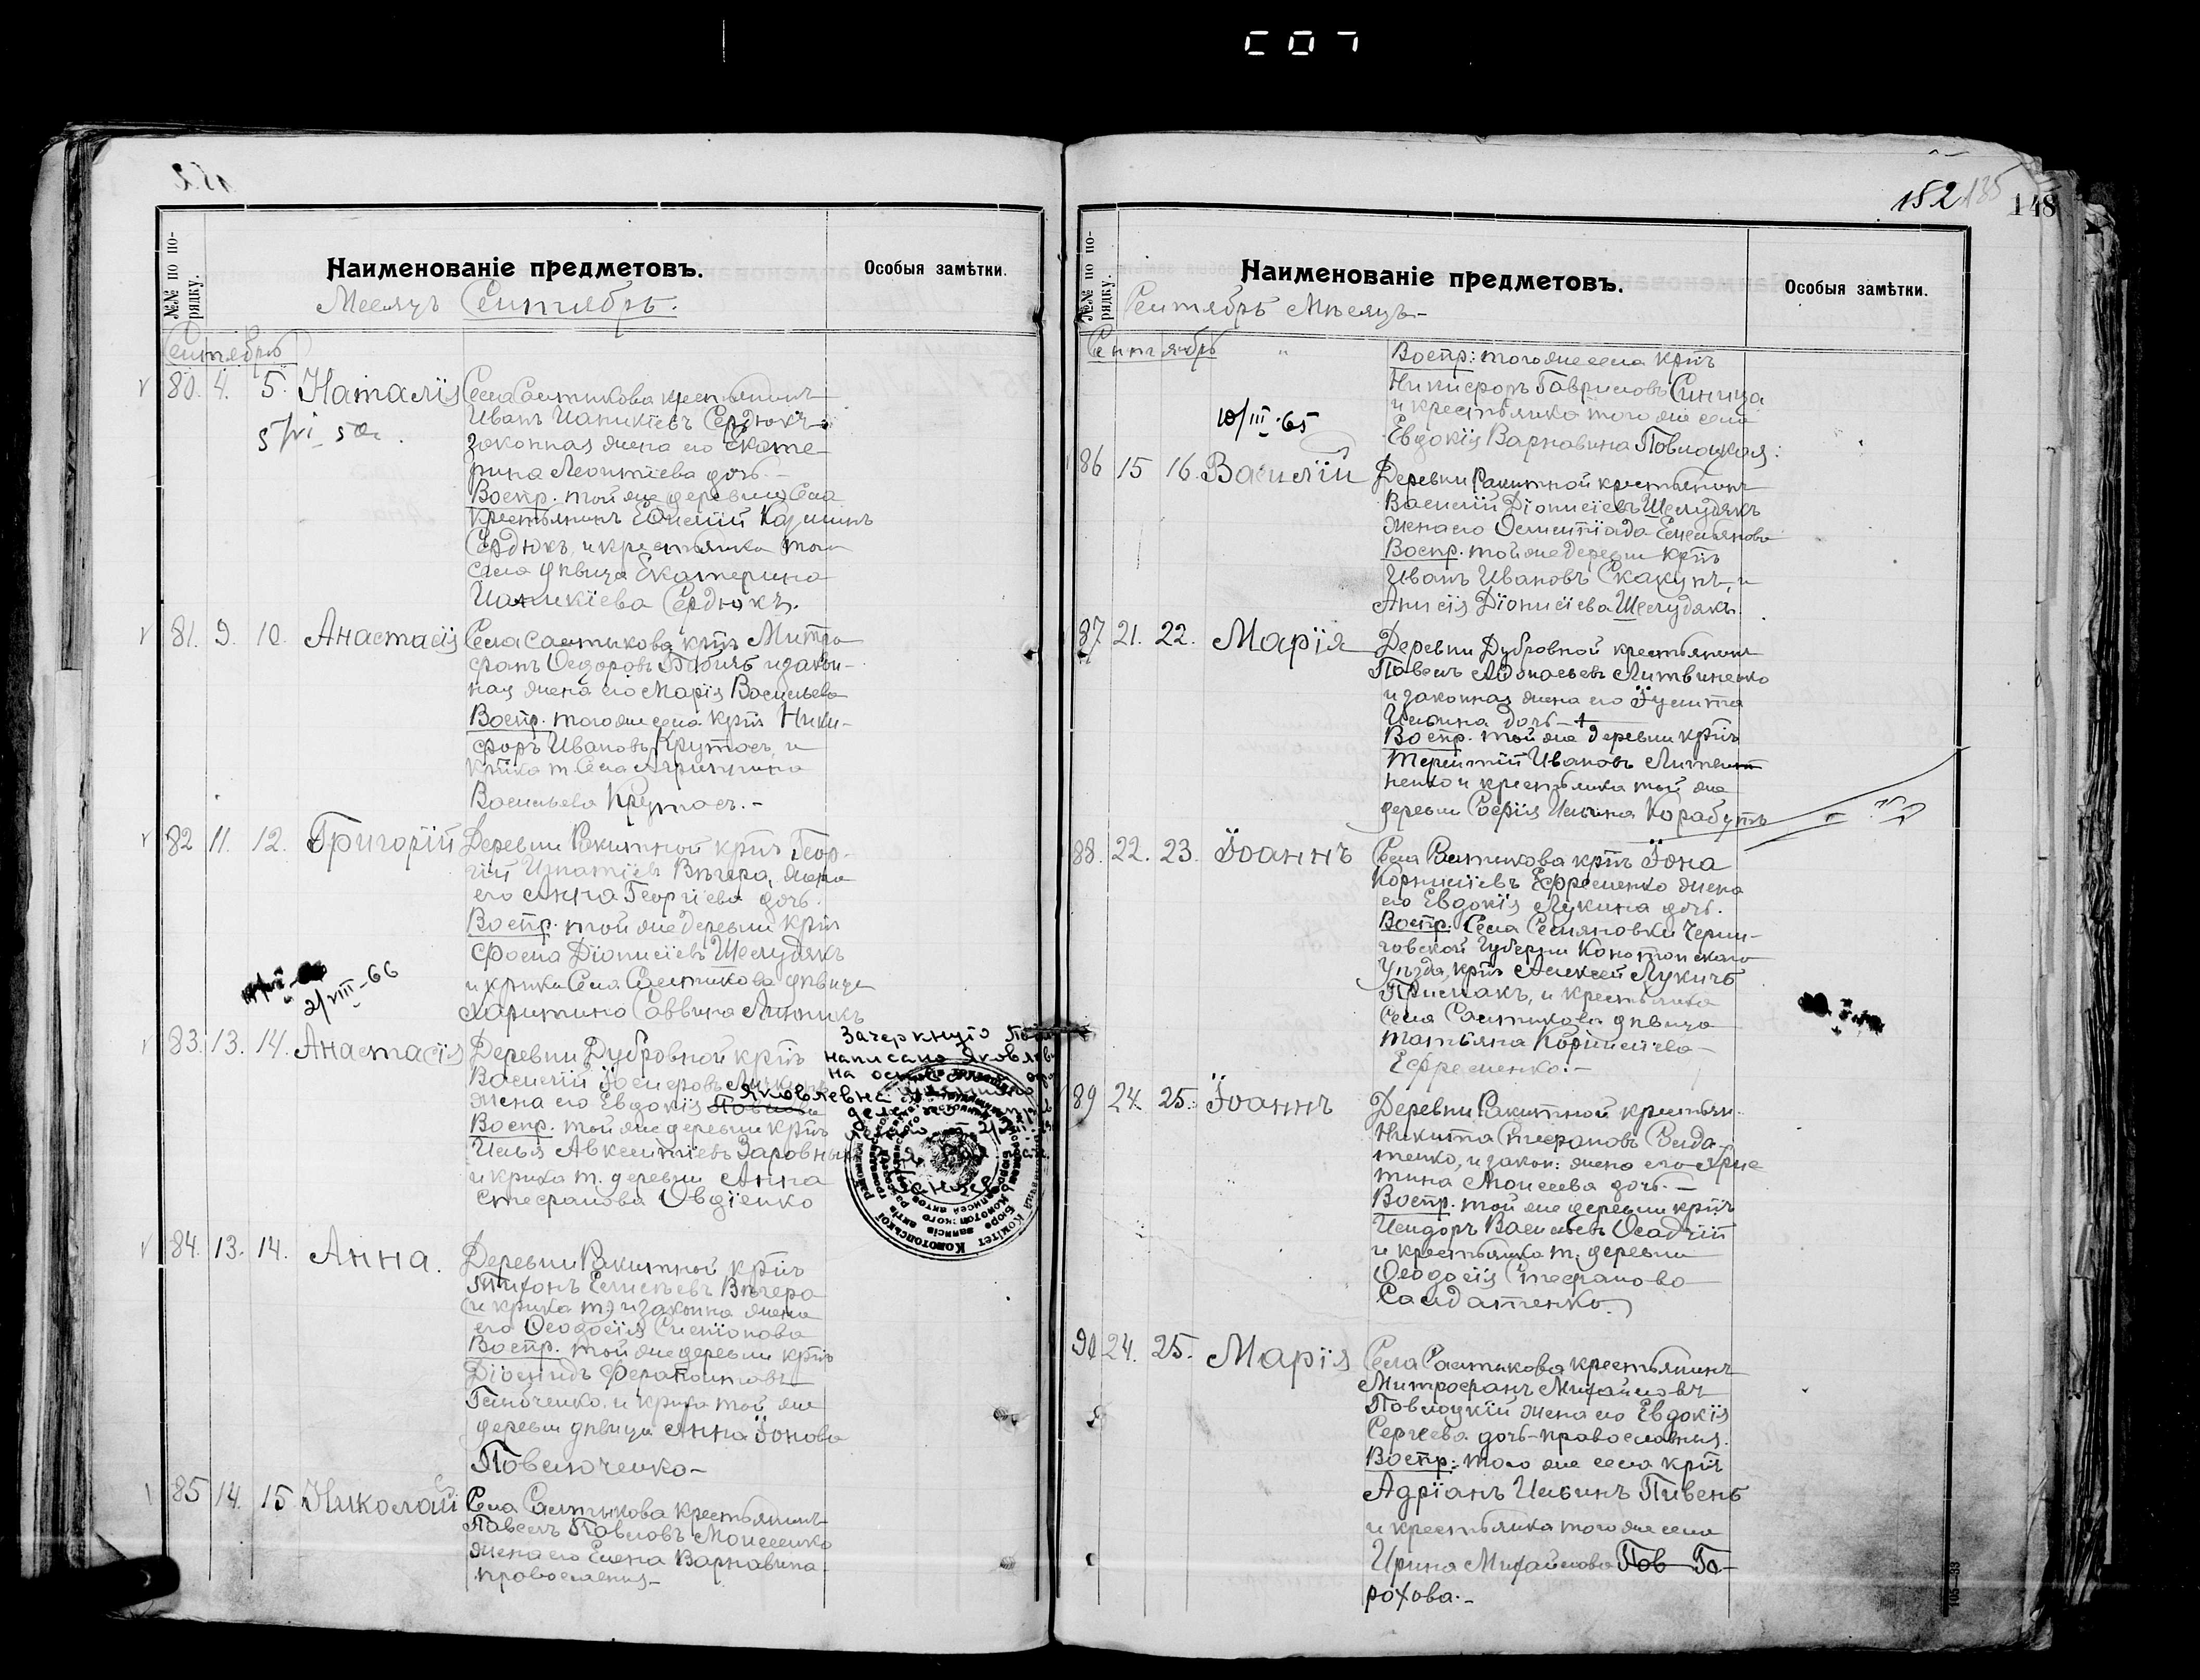 152
№№ по по-
рядку.
Наименованіе предметовъ.
Особыя замѣтки.
Месяцъ Сентябрь.
Сентябрь
80. 4. 5. Наталія Села Салтыкова крестьянинъ
Иванъ Іаникіевъ Сердюкъ и
законная жена его Екате-
рина Леонтіева дочь.-
Воспр. той же деревни Села
крестьянинъ
Сердюкъ, и крестьянка того
села дѣвица Екатерина
Іаникіева Сердюкъ.
81. 9. 10. Анастасія Села Салтыкова кр҃нъ Митро
фанъ Ѳеодоровъ Бабичъ и закон-
ная жена его Марія Васильева
Воспр. того же села кр҃нъ Ники-
форъ Ивановъ Крутось, и
кр҃нка т. Села
Васильева Крутось.-
82 11. 12. Григорій Деревни Ракитной кр҃нъ Геор-
гій Игнатіевъ Вѣчера, жена
его Анна Георгіева дочь.
Воспр. той же деревни кр҃нъ
Фома Діонисіевъ Шелудякъ
и кр҃нка Села Салтыкова дѣвица
Харитина Саввина Линникъ
2/VIII-66
83. 13. 14. Анастасія Деревни Дубровной кр҃нъ
Василій Іосифовъ
жена его Евдокія Яковлевна
Воспр. той же деревни кр҃нъ
Илья Авксентіевъ Заровный
и кр҃нка т. деревни Анна
Стефанова Овдіенко
Зачеркнуто
написано Яковлевна
на
84. 13. 14. Анна. Деревни Ракитной кр҃нъ
Тихонъ Елисѣевъ Вѣчера
(и кр҃нка т.) и законна жена
его Ѳеодосія Симіонова
Воспр. той же деревни кр҃нъ
Діомидъ Ферапонтовъ
и кр҃нка той же
деревни дѣвица Анна Іонова
Павлюченко-
85 14. 15 Николай Села Салтыкова крестьянинъ
Павелъ Павловъ Моисеенко
жена его Елена Варнавина
православныя-
152 135 148
№№ по по-
рядку.
Наименованіе предметовъ.
Особыя замѣтки.
Сентябрь Мѣсяцъ-
Сентябрь "
Воспр: того же села кр҃нъ
Никифоръ Гавриловъ Синица
и крестьянка того же села
Евдокія Варнавина Повлоцкая:
10/III-65
86 15 16. Василій Деревни Ракитной крестьянинъ
Василій Діонисіевъ Шелудякъ
жена его Олимпіада Емельянова
Воспр. той же деревни кр҃нъ
Иванъ Ивановъ Скакунъ, и
Анисія Діонисіева Шелудякъ.
87 21. 22. Марія Деревни Дубровной крестьянинъ
Павелъ Аѳонасьевъ Литвиненко
и законная жена его Іулитта
Ильина дочь-+
Воспр. той же деревни кр҃нъ
Терентій Ивановъ Литви-
ненко и крестьянка той же
деревни Софія Ильина Корабутъ
88. 22. 23. Іоаннъ Села Салтыкова кр҃нъ Іона
Корниліевъ Ефременко жена
его Евдокія Лукина дочь.
Воспр. Села Семяновки Черни-
говской Губерни Конотопскаго
Уѣзда, кр҃нъ Алексей Лукичъ
Примакъ, и крестьянка
села Салтыкова дѣвица
Татьяна Корниліева
Ефременко.-
89 24. 25. Іоаннъ Деревни Ракитной крестьян.
Никита Стефановъ Солда-
тенко, и закон: жена его Хрис
тина Моисеева дочь.-
Воспр. той же деревни кр҃нъ
Исидоръ Васильевъ Осадчій
и крестьянка т. деревни
Ѳеодосія Стефанова
Салдатенко.
90 24. 25. Марія Села Салтыкова крестьянинъ
Митрофанъ Михайловъ
Повлоцкій жена его Евдокія
Сергѣева дочь-православныя.
Воспр: того же села кр҃нъ
Адріанъ Ильинъ Пивень
и крестьянка того же села
Ирина Михайлова Пов Го-
рохова.-
105-33